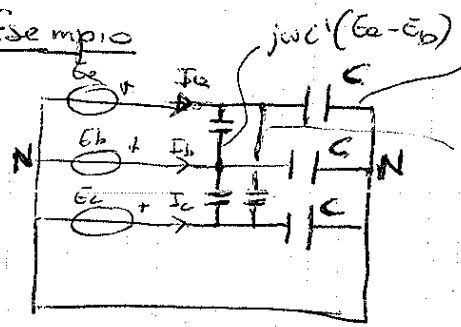 Esempio
jωc'(Ea-Eb)
Ea + Ia C
N Eb + Ib C N
Ec + Ic C